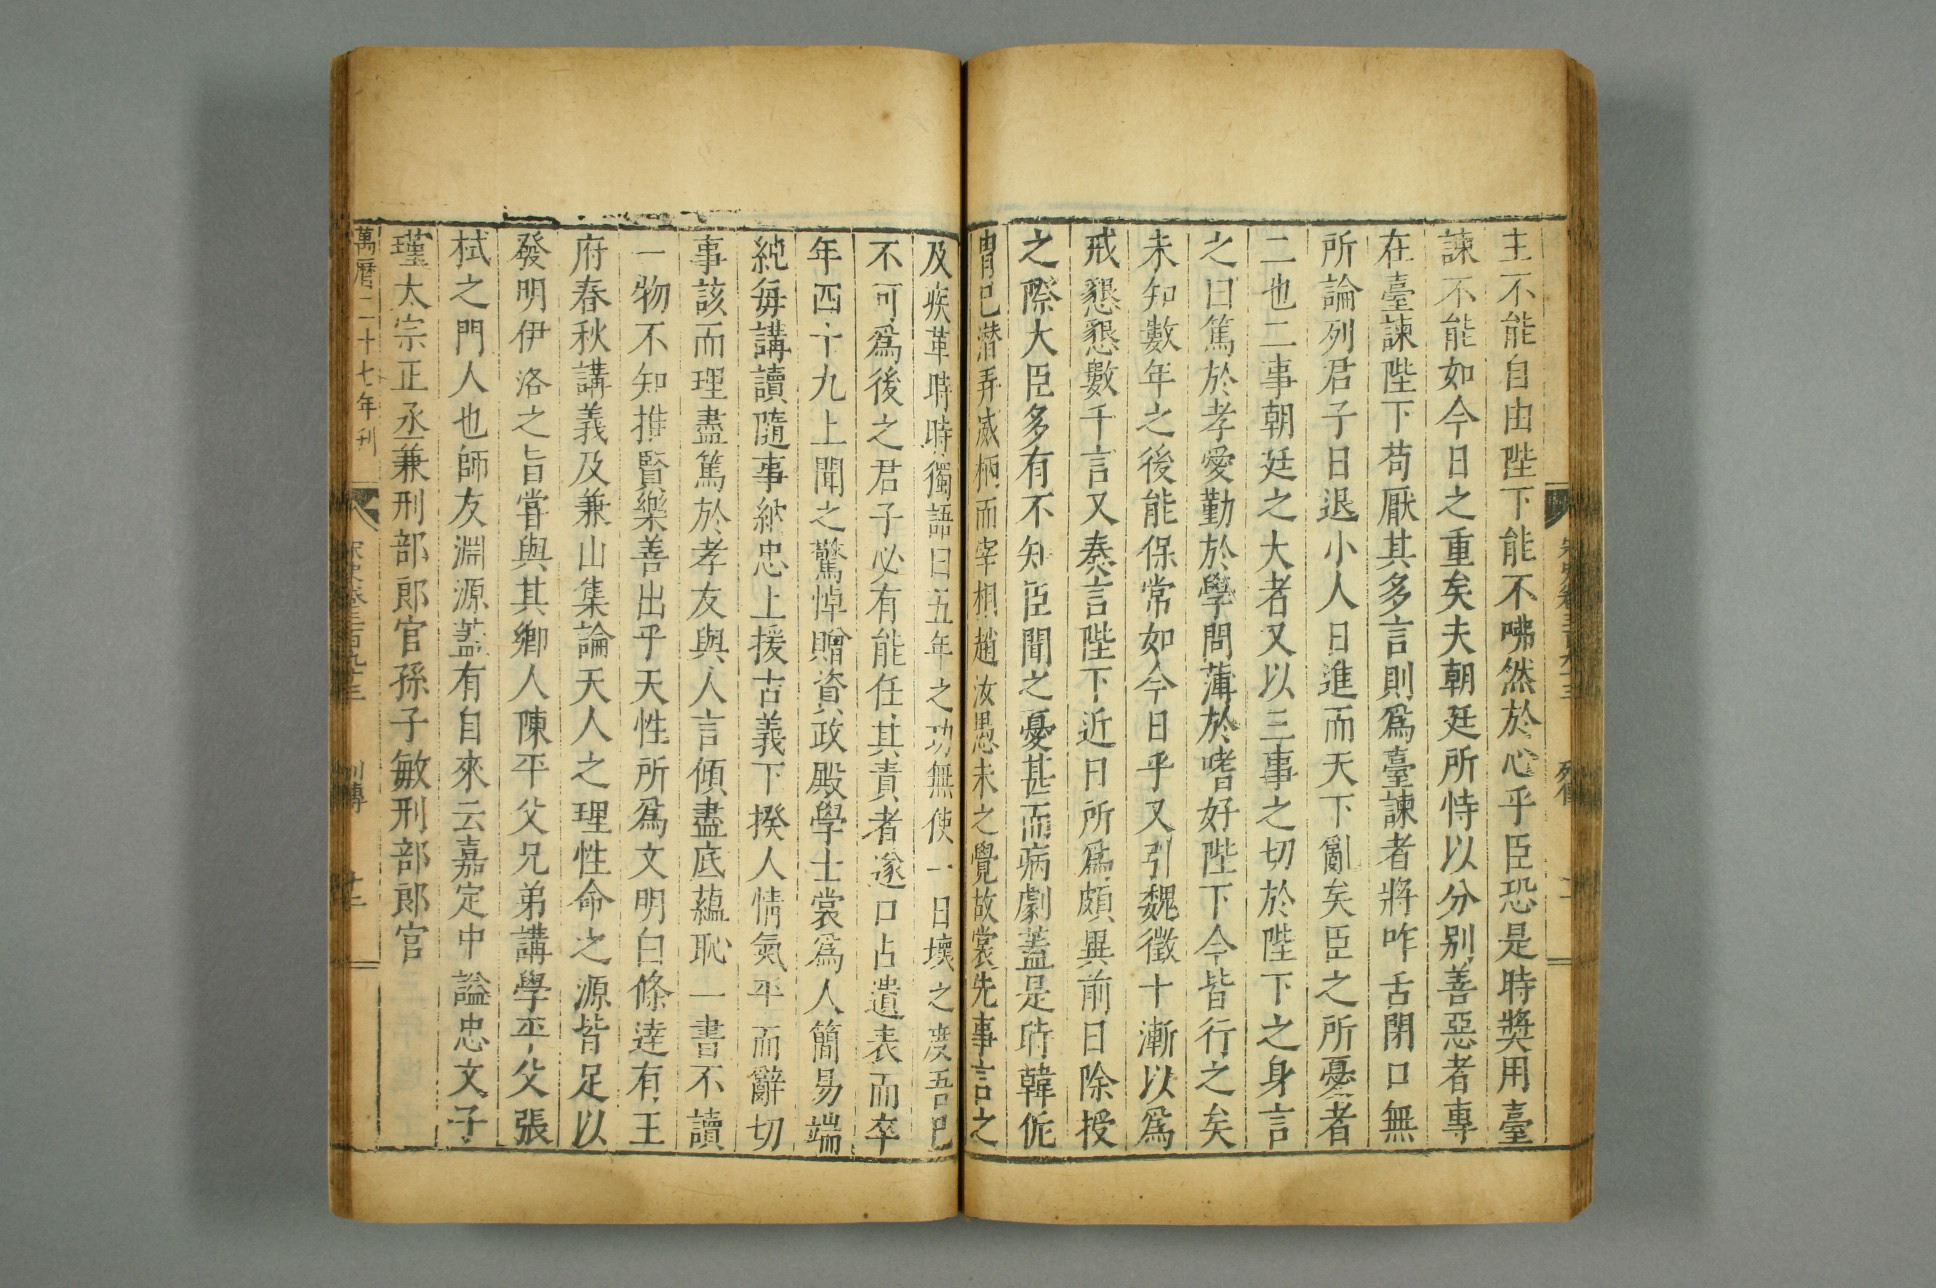 主不能自由陛下能不咈然於心乎臣恐是時獎用臺
諫不能如今日之重矣夫朝廷所恃以分别善惡者專
在臺諫陛下苟厭其多言則爲臺諫者將咋舌閉口無
所論列君子日退小人日進而天下亂矣臣之所憂者
二也二事朝廷之大者又以三事之切於陛下之身言
之曰篤於孝愛勤於學問薄於嗜好陛下今皆行之矣
未知數年之後能保常如今日乎又引魏徵十漸以爲
戒懇懇數千言又奏言陛下近日所爲頗異前日除授
之際大臣多有不知臣聞之憂甚而病劇蓋是時韓侂
胄已潛弄威柄而宰相趙汝愚未之覺故裳先事言之
及疾革時時獨語曰五年之功無使一日壞之度吾已
不可爲後之君子必有能任其責者遂口占遺表而卒
年四十九上聞之驚悼贈資政殿學士裳爲人簡易端
純每講讀隨事納忠上援古義下揆人情氣平而辭切
事該而理盡篤於孝友與人言傾盡底蘊恥一書不讀
一物不知推賢樂善出乎天性所爲文明白條達有王
府春秋講義及兼山集論天人之理性命之源皆足以
發明伊洛之旨嘗與其鄉人陳平父兄弟講學平父張
栻之門人也師友淵源蓋有自來云嘉定中謚忠文子
瑾太宗正丞兼刑部郎官孫子敏刑部郎官
萬曆二十七年刊
宋史卷三百九十三
列傳
十二